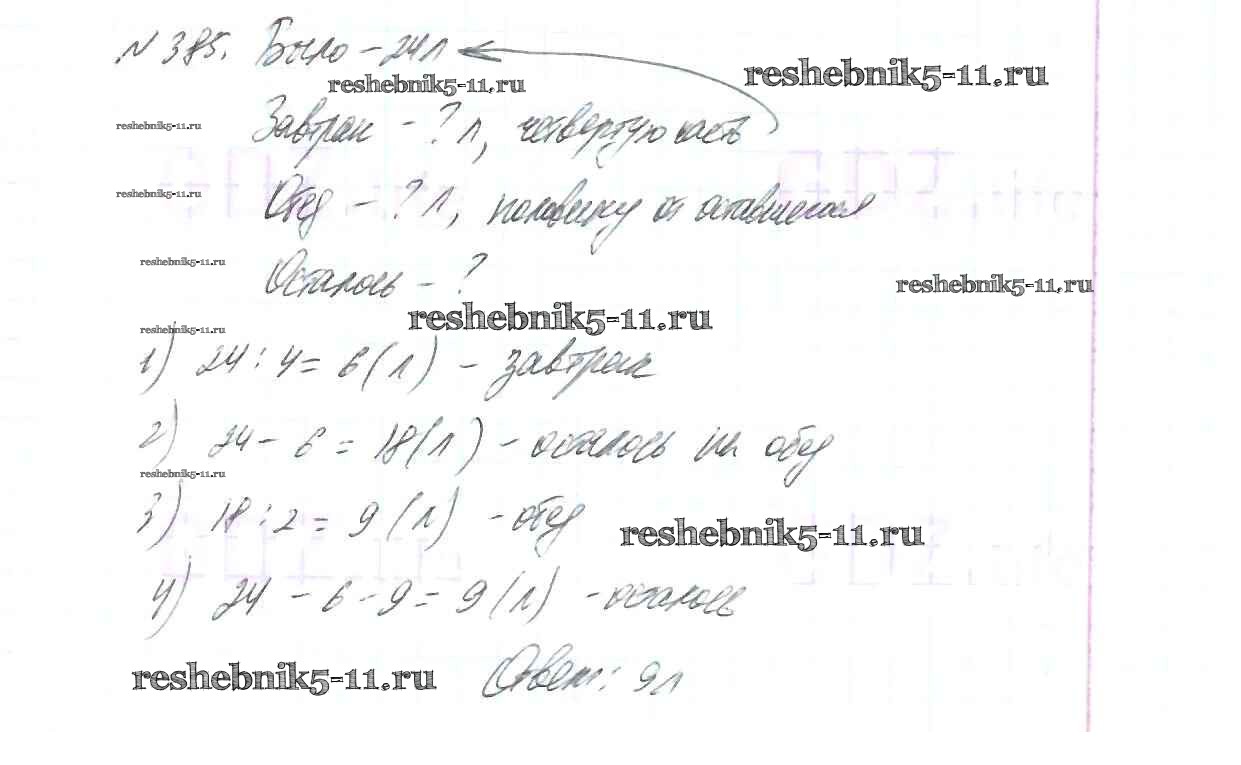 № 385. Было – 24 л
reshebnik5-11.ru
reshebnik5-11.ru
reshebnik5-11.ru
Завтрак – ? л, четвертую часть
reshebnik5-11.ru
Обед – ? л, половину от оставшегося
reshebnik5-11.ru
Осталось – ?
reshebnik5-11.ru
reshebnik5-11.ru
reshebnik5-11.ru
1) 24 : 4 = 6 (л) – завтрак
2) 24 – 6 = 18 (л) – осталось на обед
reshebnik5-11.ru
3) 18 : 2 = 9 (л) – обед
reshebnik5-11.ru
4) 24 – 6 – 9 = 9 (л) – осталось
reshebnik5-11.ru
Ответ: 9 л